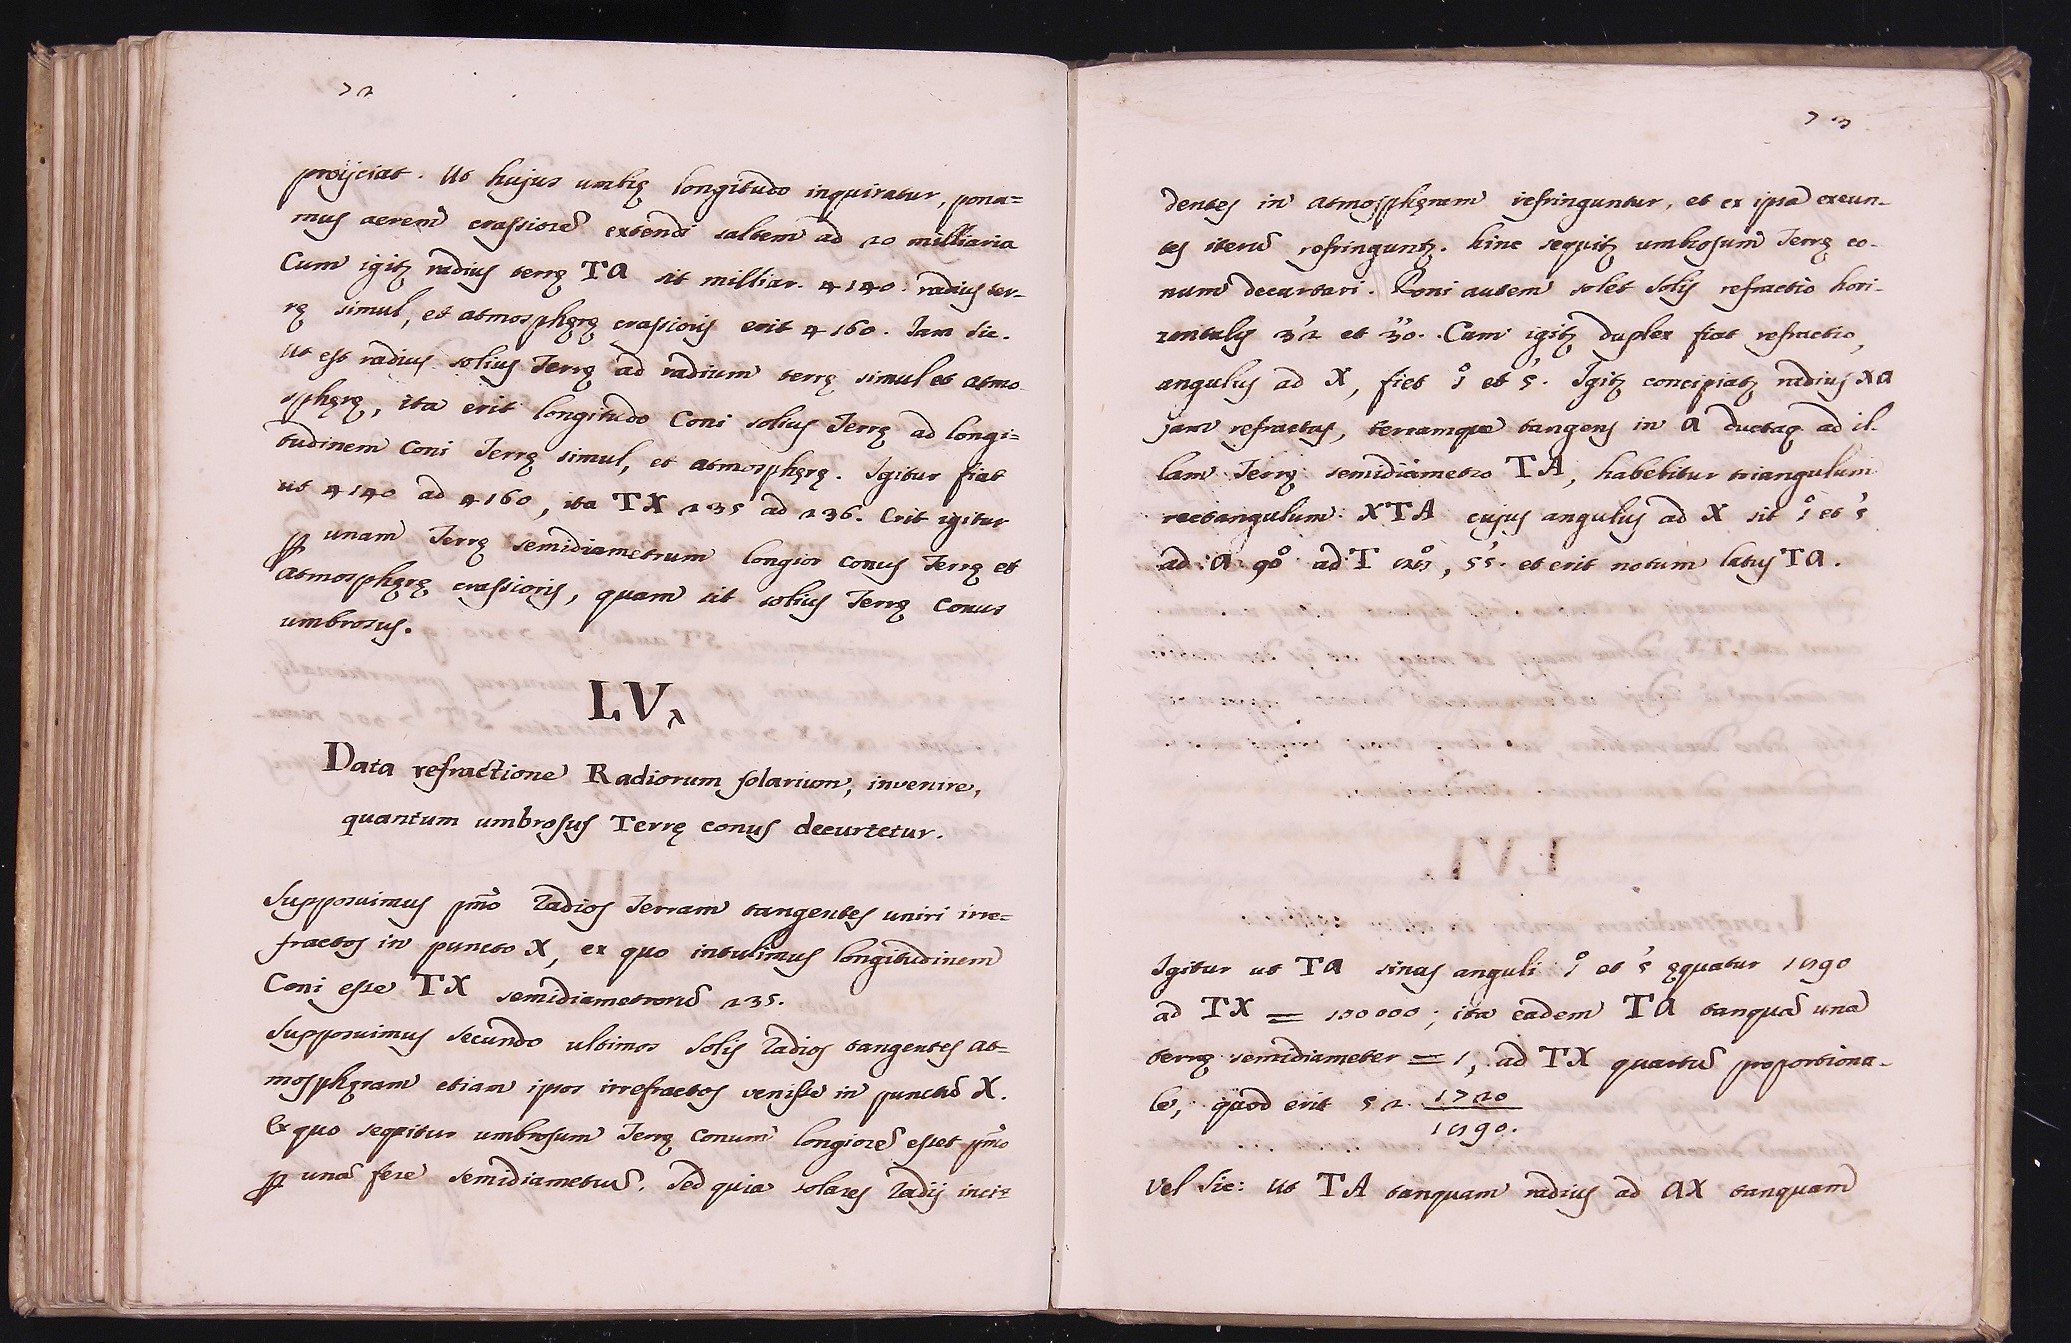 72
proijciat. Ut hujus umbrę longitudo inquiratur, pona=
mus aerem crassiorē extendi saltem ad 20 milliaria
Cum igitʒ radius terrę TA sit milliar. 4140. radius ter-
rę simul, et atmosphęrę crassioris erit 4160. Iam sic.
Ut est radius solius Terrę ad radium terrę simul et atmo-
sphęrę, ita erit longitudo Coni solius Terrę ad longi=
tudinem Coni Terrę simul, et atmosphęrę. Igitur fiat
ut 4140 ad 4160, ita TX 235 ad 236. Erit igitur
ꝑ unam Terrę semidiametrum longior conus Terrę et
Atmosphęrę crassioris, quam sit solius Terrę Conus
umbrosus.
LV.
Data refractione Radiorum solarium, invenire,
quantum umbrosus Terrę conus decurtetur.
Supposuimus pm̄o Radios Terram tangentes uniri irre=
fractos in puncto X, ex quo intulimus longitudinem
Coni esse TX semidiametrorū 235.
Supposuimus secundo ultimos Solis Radios tangentes at=
mosphęram etiam ipsos irrefractos venisse in punctū X.
Ex quo sequitur umbrosum Terrę conum longiorē esset pm̄o
ꝑ unā fere semidiametrū. Sed quia solares Radij inci=
73
dentes in atmosphęram refringuntur, et ex ipsa exeun-
tes iterū refringuntʒ. hinc sequitʒ umbrosum Terrę co-
num decurtari. Poni autem solet Solis refractio hori-
zontalis 32' et 30''. Cum igitʒ duplex fiat refractio,
angulus ad X, fiet 1° et 5'. Igitʒ concipiatʒ radius XA
jam refractus, terramque tangens in A ductaq ad il-
lam Terrę semidiametro TA, habebitur triangulum
rectangulum XTA cujus angulus ad X sit 1° et 5'
ad A 90° ad T 88°, 55'. et erit notum latus TA.
Igitur ut TA sinus anguli 1° et 5' ęquatur 1890
ad TX = 100000; ita eadem TA tanquā una
terrę semidiameter = 1, ad TX quartū proportiona-
le, quod erit 52 1720
1890.
Vel sic: Ut TA tanquam radius ad AX tanquam